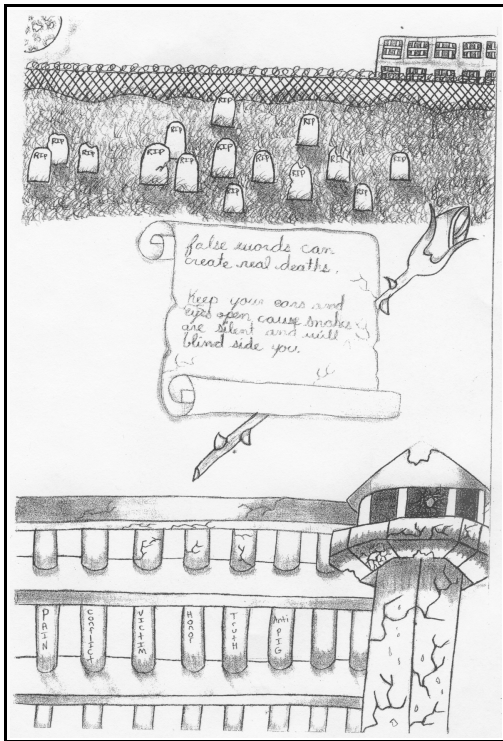 RIP
RIP
RIP
RIP
RIP
RIP
RIP
RIP
RIP
RIP
RIP
RIP
RIP
false words can
create real deaths.
Keep your ears and
eyes open cause snakes
are silent and will
blind side you.
PAIN
CONFLICT
VICTIM
Honor
TruTH
Anti
PIG